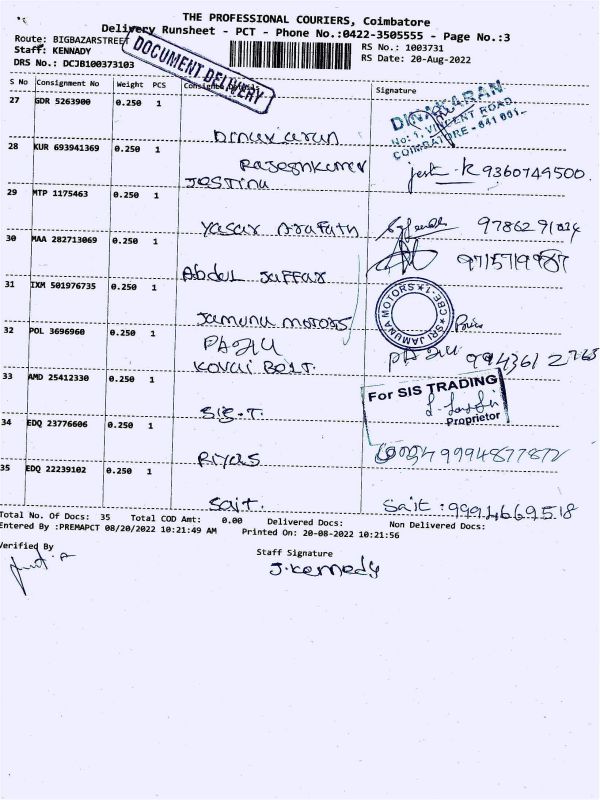 THE PROFESSIONAL COURIERS, Coimbatore
Delivery Runsheet - PCT - Phone No.:0422-3505555 - Page No.:3
Route: BIGBAZARSTREET
RS No.: 1003731
Staff: KENNADY
RS Date: 20-Aug-2022
DRS No.: DCJB100373103
DOCUMENT DELIVERY
S No Consignment No Weight PCS Signature
27 GDR 5263900 0.250 1
DINAKARAN
No: 1, VINCENT ROAD
COIMBATORE - 641 001
28 KUR 693941369 0.250 1
Rajeshkumar
Jestina
9360749500
29 MTP 1175463 0.250 1
Yasar Arafath
30 MAA 282713069 0.250 1
Abdul Jaffar
31 IXM 501976735 0.250 1
Jamuna motors
SRI JAMUNA MOTORS CBE-1
32 POL 3696960 0.250 1
Kovai Belt.
33 AMD 25412330 0.250 1
S.I.S.T.
For SIS TRADING
Proprietor
34 EDQ 23776606 0.250 1
Riyas
35 EDQ 22239102 0.250 1
Sait.
Sait : 9994669518
Total No. Of Docs: 35 Total COD Amt: 0.00 Delivered Docs: Non Delivered Docs:
Entered By :PREMAPCT 08/20/2022 10:21:49 AM Printed On: 20-08-2022 10:21:56
Verified By
Staff Signature
J.Kennedy